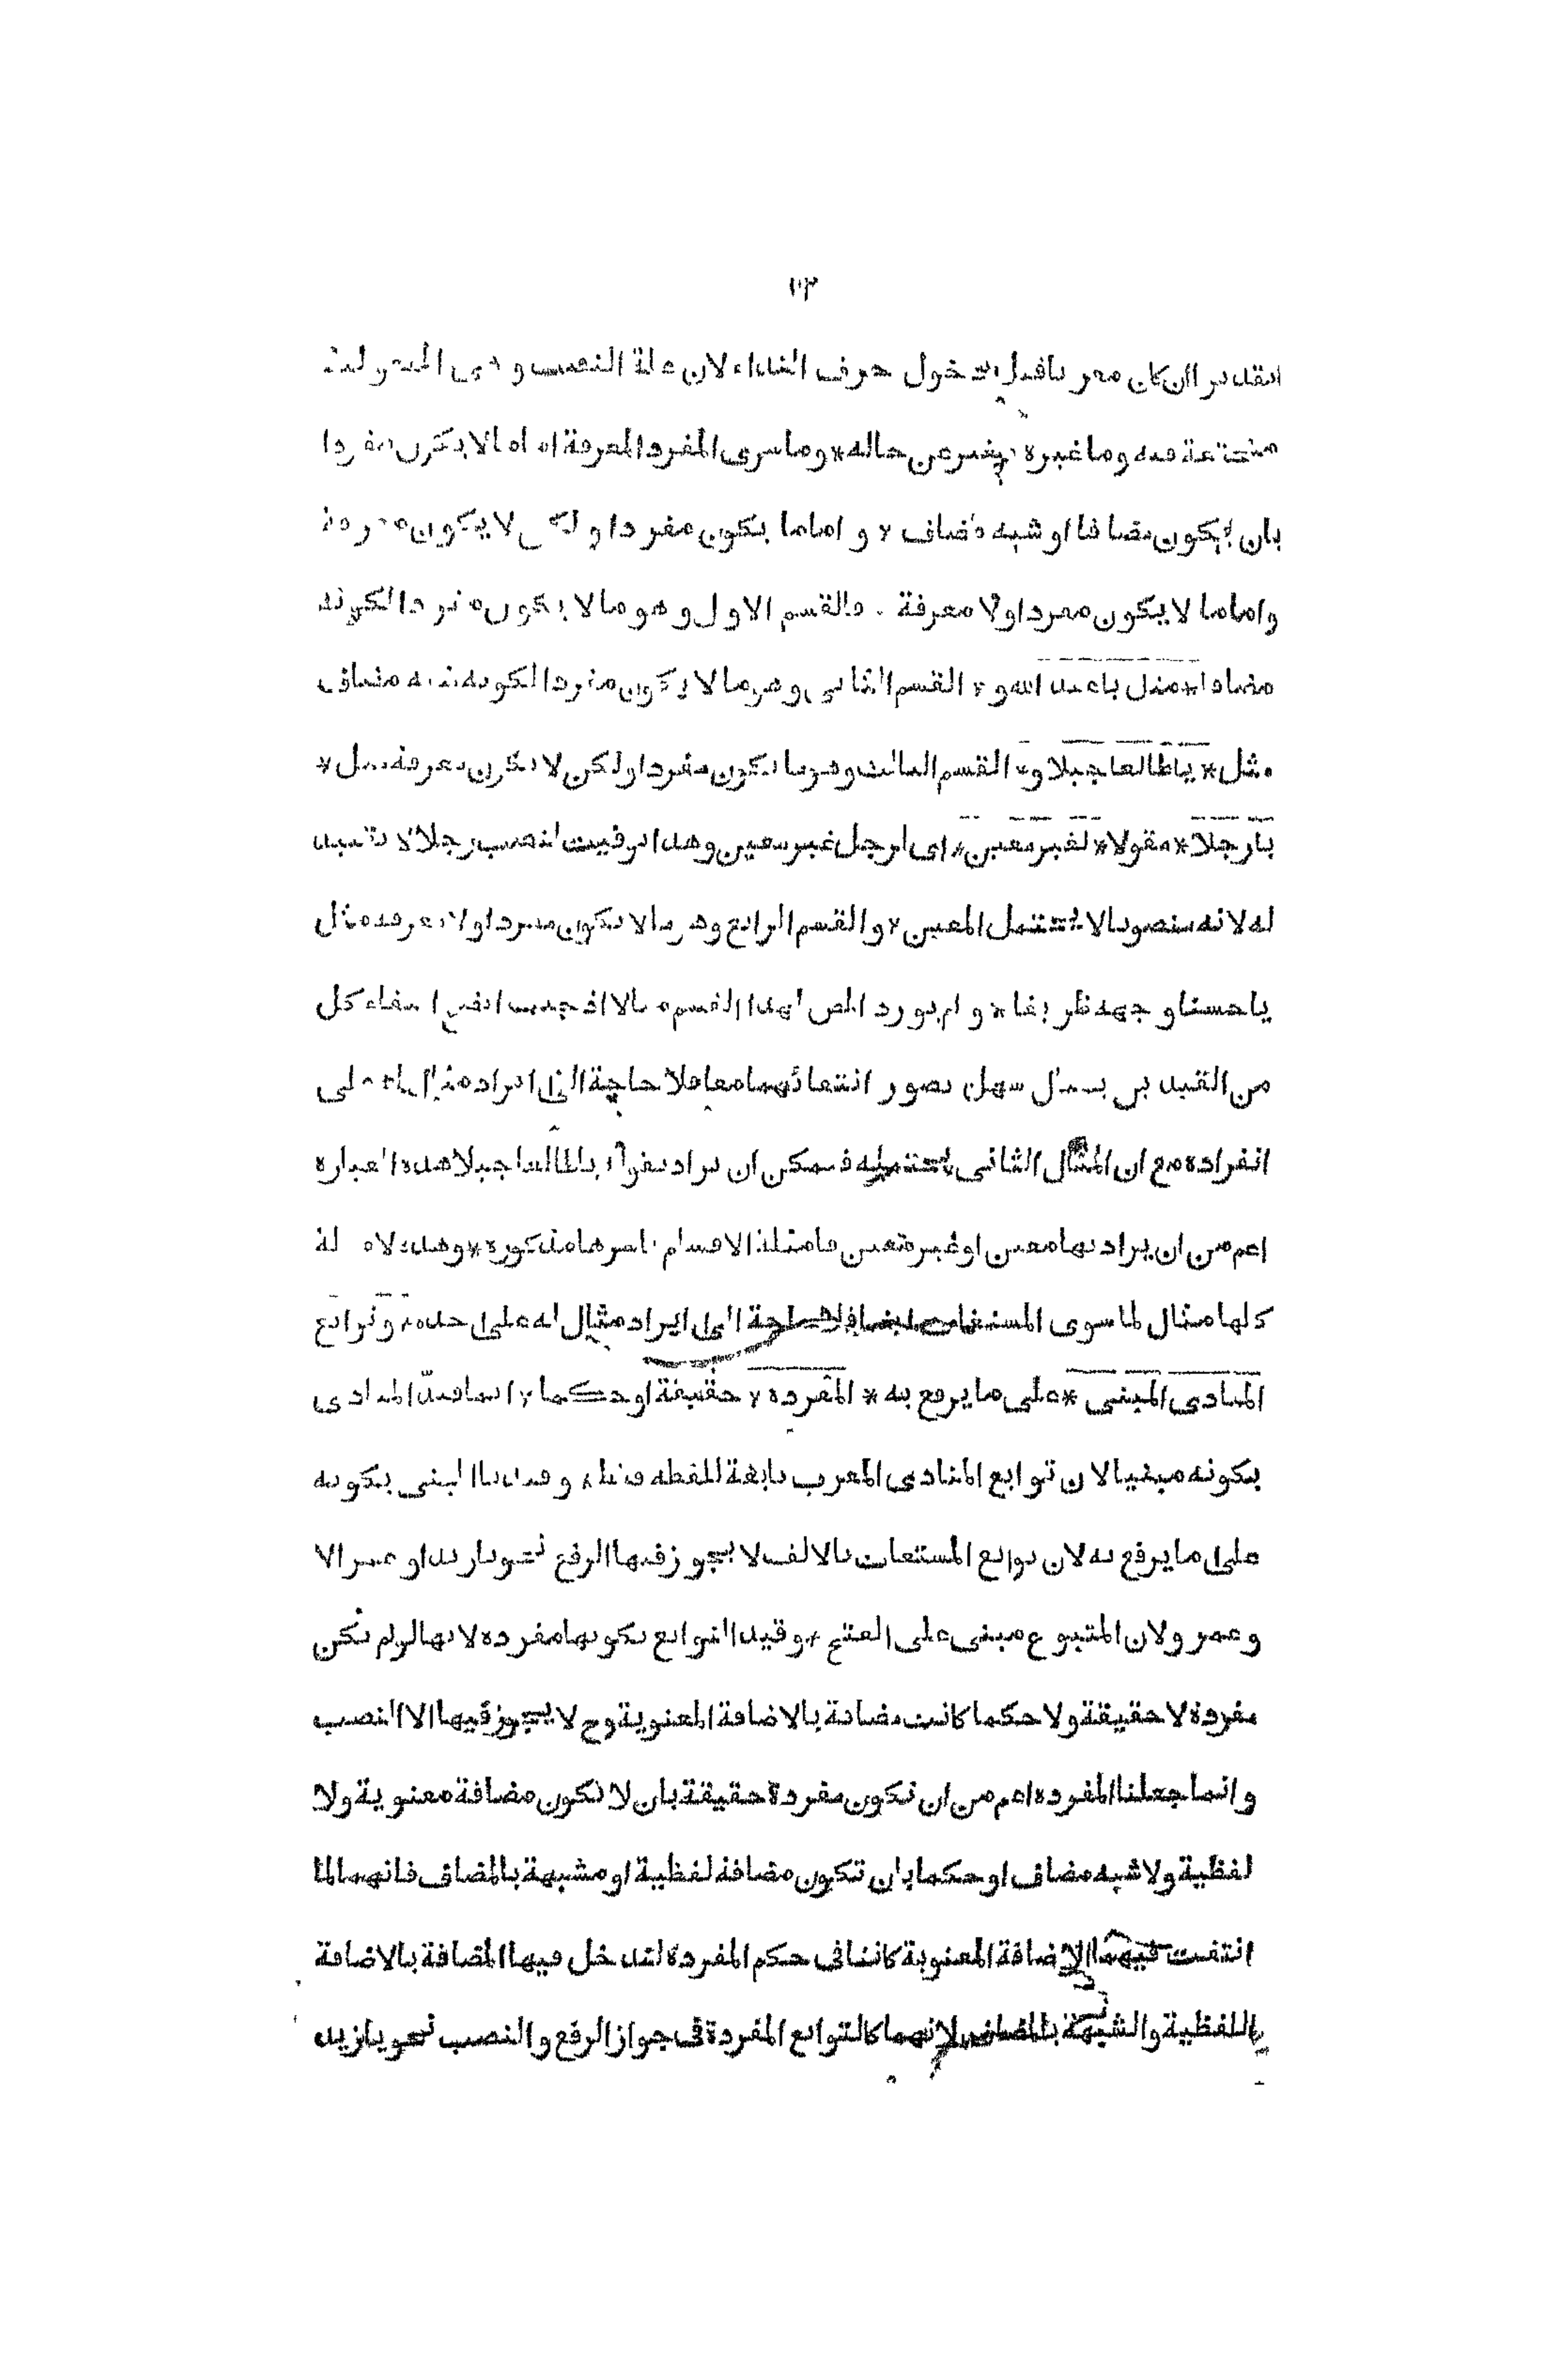 ١٣
ان كان معربا قبل دخول حرف النداء لان علة النصب و هى المفعولية
متحققة فيه وما غيره مغير عن حاله * وما سوى المفرد المعرفة اما ما لا يكون مفردا
بان يكون مضافا او شبه مضاف * و اما ما يكون مفردا و لكن لا يكون معرفة
و اما ما لا يكون مفردا ولا معرفة . فالقسم الاول و هو ما لا يكون مفردا لكونه
مضافا * مثل يا عبد الله و * القسم الثانى و هو ما لا يكون مفردا لكونه شبه مضاف
مثل * يا طالعا جبلا و * القسم الثالث وهو ما يكون مفردا ولكن لا يكون معرفة مثل *
يا رجلا * مقولا * لغير معين * اى لرجل غير معين وهذا توقيت لنصب رجلا لا تقييد
له لانه منصوبا لا يحتمل المعين * و القسم الرابع وهو ما لا يكون مفردا ولا معرفة مثل
يا حسنا وجهه ظريفا * و لم يورد المص لهذا القسم مثالا اذ حيث اتضح انتفاء كل
من القيدين بمثال سهل تصور انتفائهما معا فلا حاجة الى ايراد مثال له على
انفراده مع ان المثال الثانى يحتمله فيمكن ان يراد بقوله يا طالعا جبلا هذه العبارة
اعم من ان يراد بها معين او غير معين فامثلة الاقسام باسرها مذكورة * وهذه الامثلة
كلها مثال لما سوى المستغاث ايضا فلا حاجة الى ايراد مثال له على حدة * و توابع
المنادى المبنى * على ما يرفع به * المفردة * حقيقة او حكما * انما قيد المنادى
بكونه مبنيا لان توابع المنادى المعرب تابعة للفظه فقط * و قيدنا المبنى بكونه
على ما يرفع به لان توابع المستغاث بالالف لا يجوز فيها الرفع نحو يا زيدا و عمرا لا
و عمرو لان المتبوع مبنى على الفتح * و قيد التوابع بكونها مفردة لانها لو لم تكن
مفردة لا حقيقة ولا حكما كانت مضافة بالاضافة المعنوية و ح لا يجوز فيها الا النصب
و انما جعلنا المفردة اعم من ان تكون مفردة حقيقة بان لا تكون مضافة معنوية ولا
لفظية ولا شبه مضاف او حكما بان تكون مضافة لفظية او مشبهة بالمضاف فانهما لما
انتفت فيهما الاضافة المعنوية كانتا فى حكم المفردة لتدخل فيها المضافة بالاضافة
اللفظية والشبيهة بالمضاف لانهما كالتوابع المفردة فى جواز الرفع و النصب نحو يا زيد